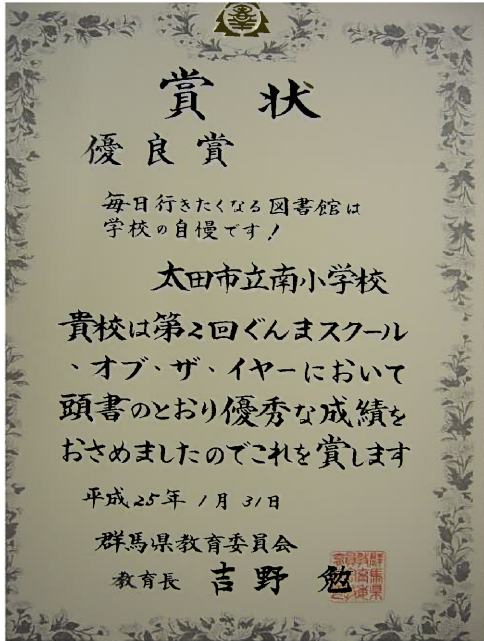 賞状
優良賞
毎日行きたくなる図書館は
学校の自慢です!
太田市立南小学校
貴校は第2回ぐんまスクール
・オブ・ザ・イヤーにおいて
頭書のとおり優秀な成績を
おさめましたのでこれを賞します
平成25年1月31日
群馬県教育委員会
教育長 吉野 勉